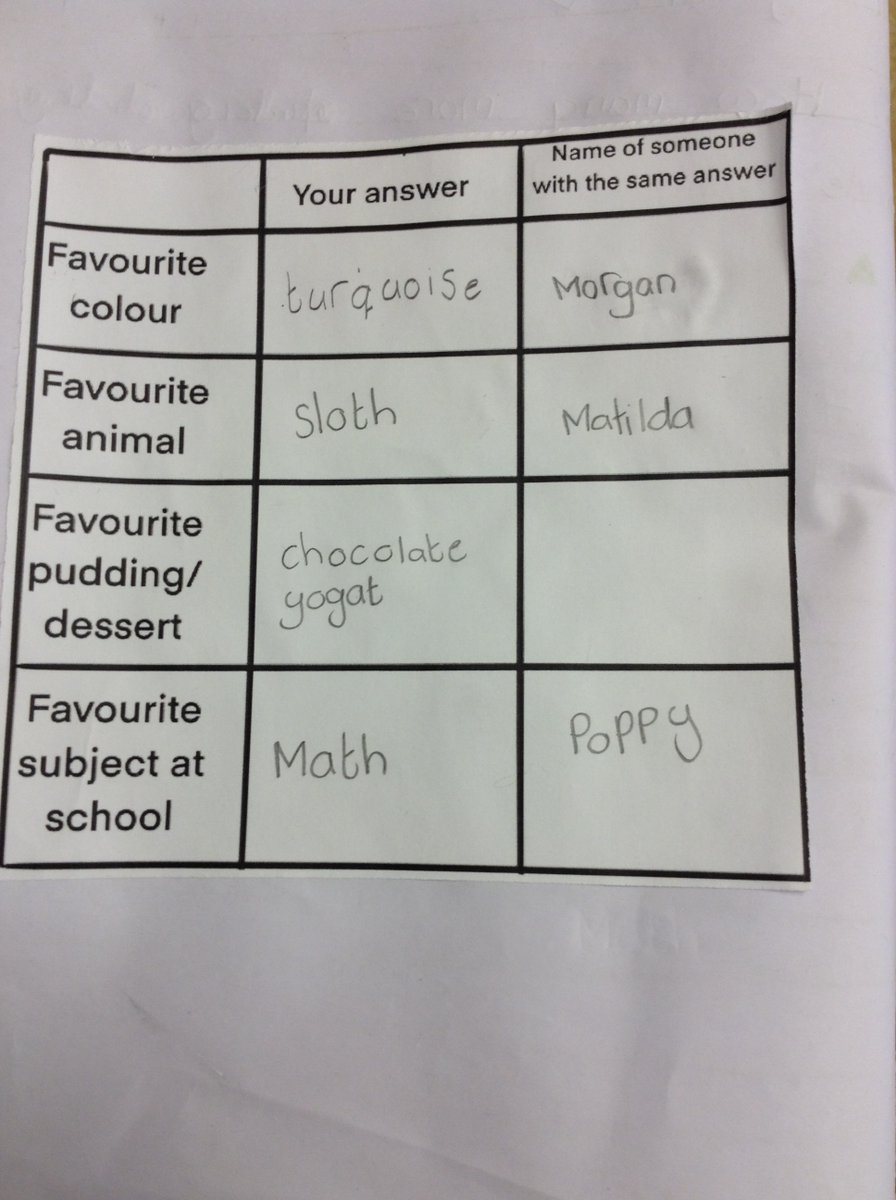 Your answer
Name of someone
with the same answer
Favourite
colour
turquoise
Morgan
Favourite
animal
Sloth
Matilda
Favourite
pudding/
dessert
chocolate
yogat
Favourite
subject at
school
Math
Poppy